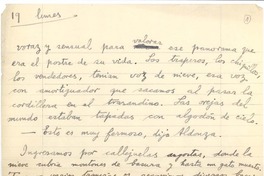 19 lunes
voraz y sensual para valorar ese panorama que
era el postre de su vida. Los traperos, los chiquillos
los vendedores, tenían voz de nieve, era voz
con amortiguador que sacamos al pasar la
cordillera en el trasandino. Las orejas del
mundo estaban tapadas con algodón de cielo.
— Esto es muy hermoso, dijo Aldonza.
Ingresamos por callejuelas angostas, donde la
nieve cubría montones de basura y hasta un gato muerto.